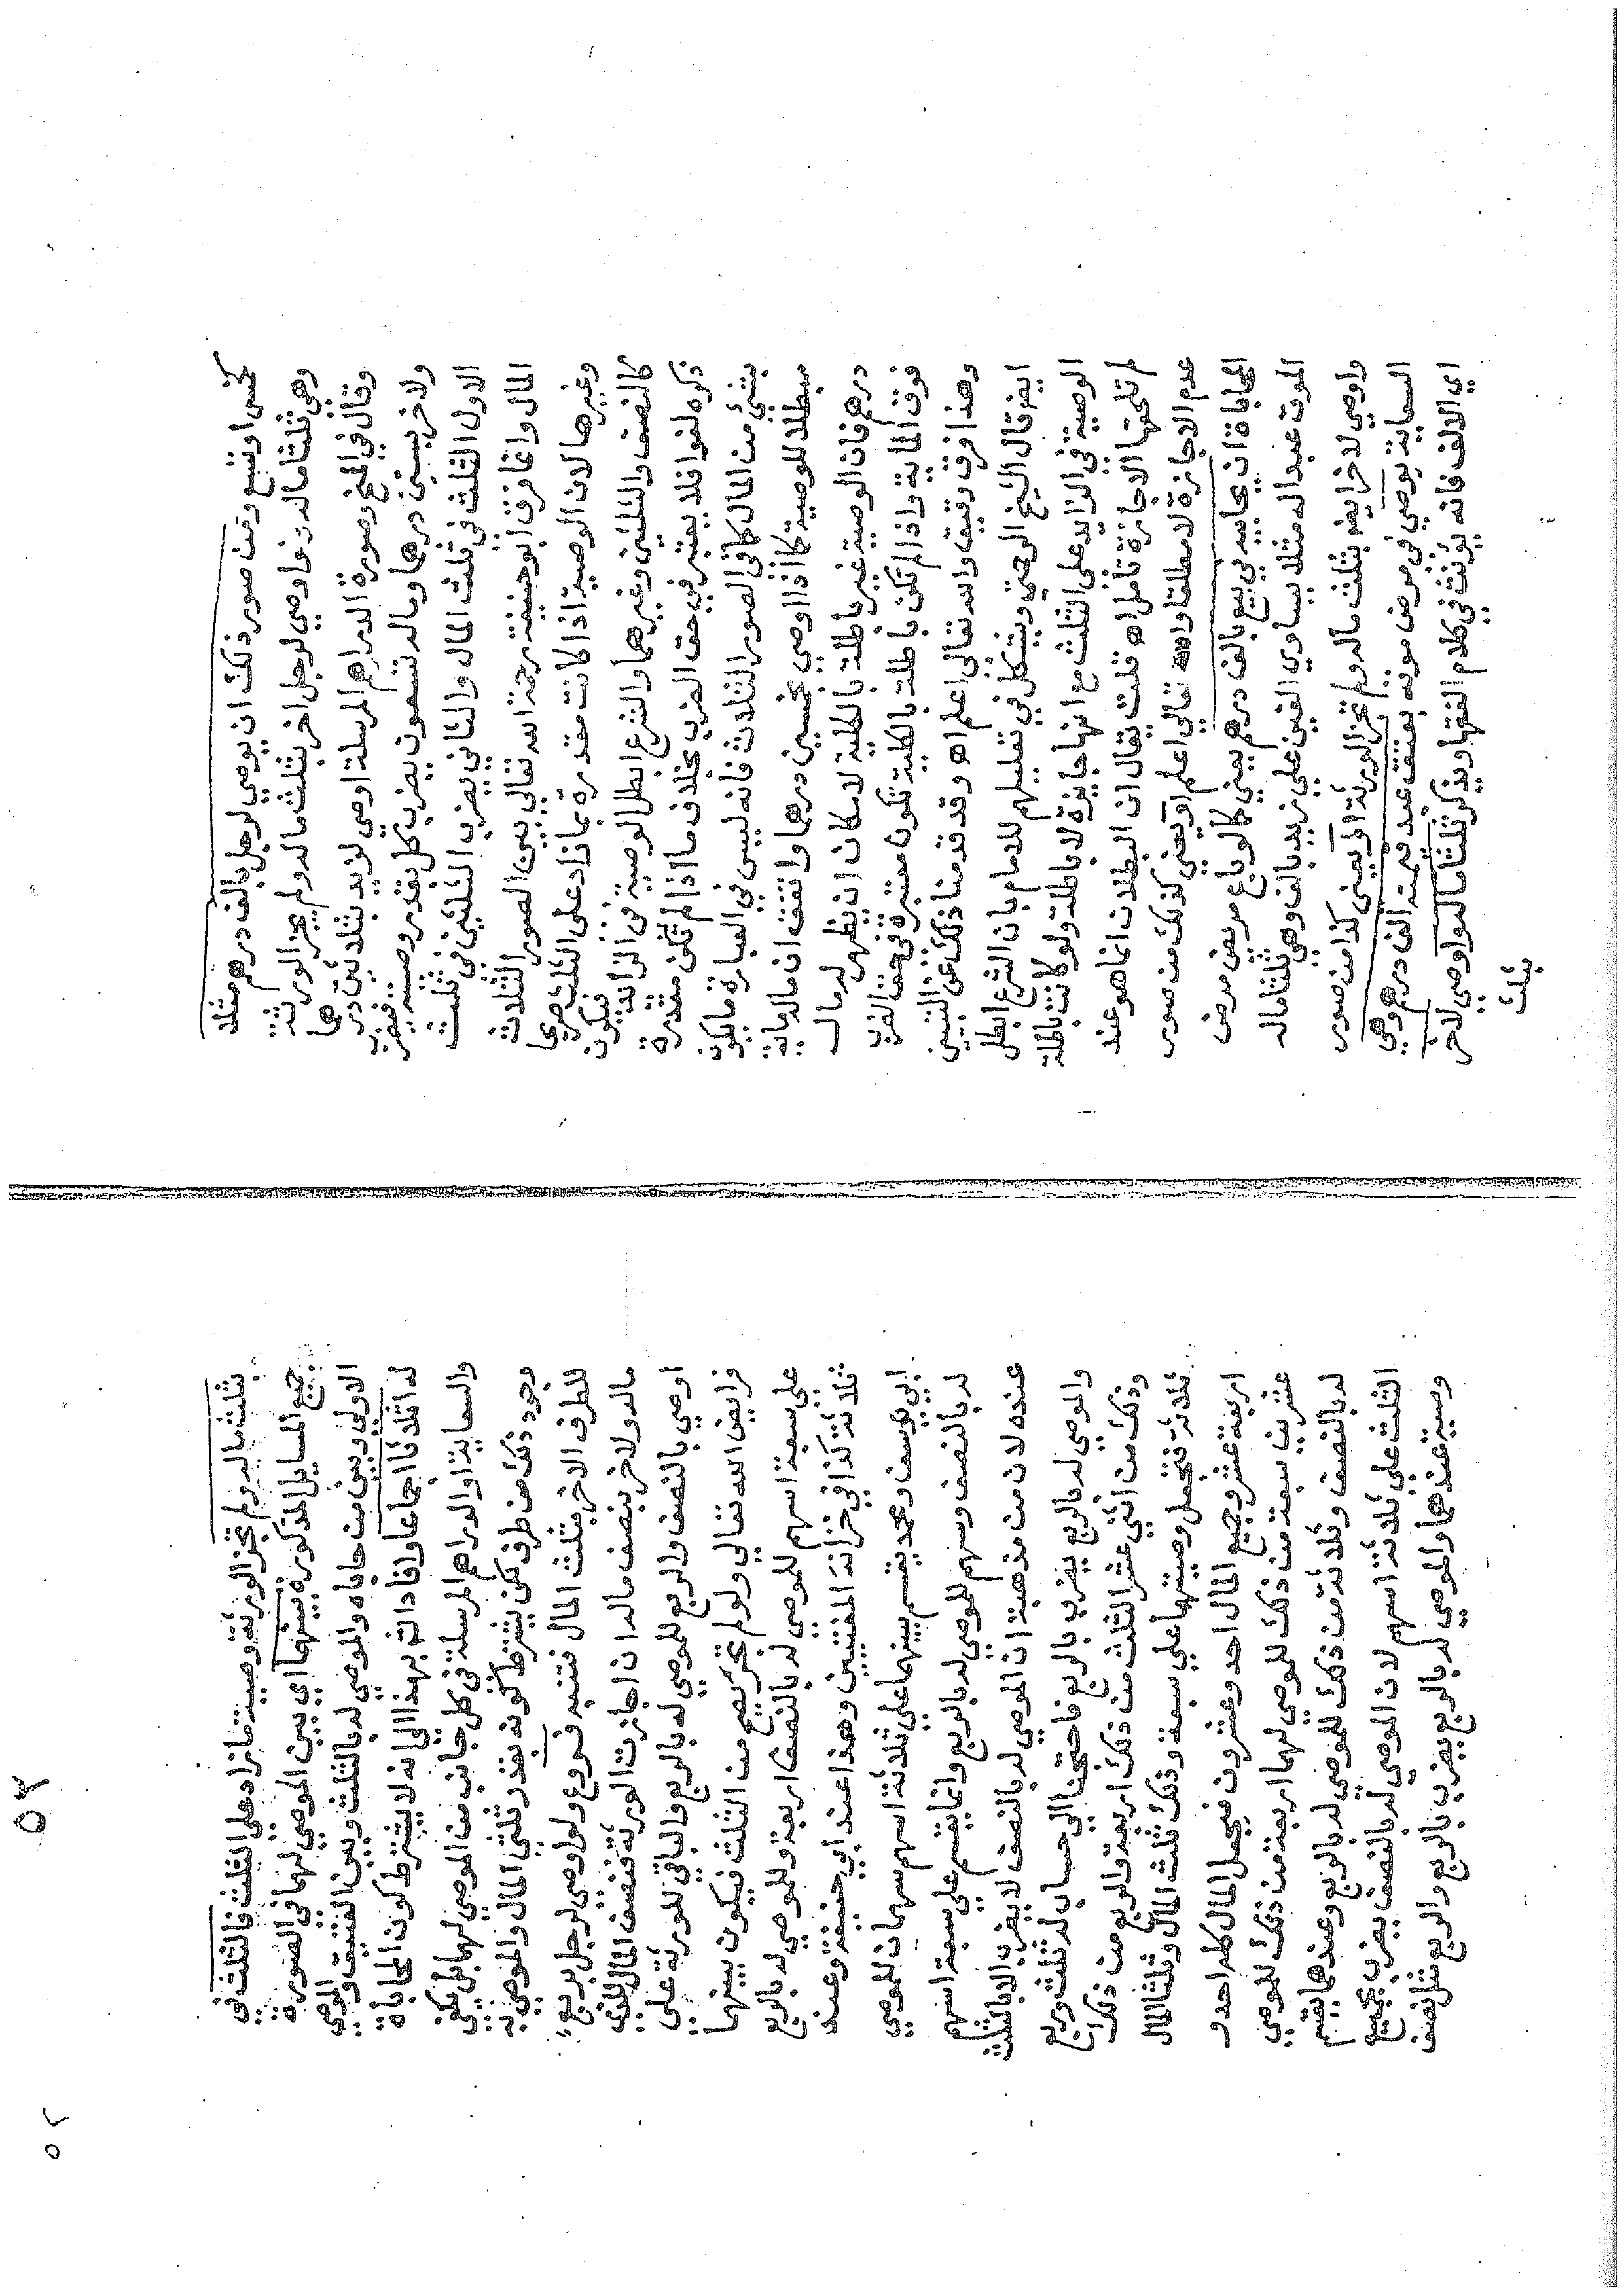 كخمس او تسع ومن صور ذلك ان يوصي لرجل بالف درهم مثلا
وهي ثلثا ماله او اوصي لرجل اخر بثلث ماله ولم يجز الورثة
وقال في المنح وصورة الدراهم المرسلة اوصي لزيد بثلاثين درهما
ولاخر بستين درهما وماله تسعون يضرب كل بقدر وصيته فيضرب
الاول الثلث في ثلث المال والثاني يضرب الثلثين في ثلث
المال وانما فرق ابو حنيفة رحمة الله تعالي بين الصور الثلاث
وغيرها لان الوصية اذا كانت مقدرة بما زاد على الثلث صريحا
كالنصف والثلثين وغيرهما والشرع ابطل الوصية في الزائد فيكون
ذكره لغوا فلا يعتبر في حق الضرب بخلاف ما اذا لم تكن مقدرة
بشئ من المال كما في الصور الثلاث فانه ليس في العبارة ما يكون
مبطلا للوصية كما اذا اوصي بخمسين درهما واتفق ان ماله مائة
درهم فان الوصية غير باطلة بالكلية لامكان ان يظهر له مال
فوق المائة واذا لم تكن باطلة بالكلية تكون معتبرة في حق الضرب
وهذا فرق دقيق والله تعالى اعلم اه وقد قدمنا ذلك عن التبيين
ايضا قال الشيخ الرحمتي ويشكل في تعليلهم للامام بان الشرع ابطل
الوصية في الزايد على الثلث مع انها جايزة لا باطلة ولو كانت باطلة
لم تلحقها الاجازة تأمل اه قلت يقال ان البطلان انما هو عند
عدم الاجازة لا مطلقا والله تعالي اعلم او يعني كذلك من صور
المحاباة ان يحابيه في بيع بالف درهم يعني كما لو باع مريض مرض
الموت عبدا له مثلا يساوي الفين علي زيد بالف وهي ثلثا ماله
واوصي لاخر ايضا بثلث ماله ولم تجز الورثة او يعني كذا من صور
السعاية يوصي في مرض موته بعتق عبد قيمته الف درهم وهي
اي الالف فانه يؤنث في كلام الفقها ويذكر ثلثا ماله واوصي لاخر
بثلث
بثلث ماله ولم تجز الورثة وصيته ما زاد على الثلث فالثلث في
جميع المسايل المذكورة بينهما اي بين الموصي لهما في الصورة
الاولي وبين من حاباه والموصي له بالثلث وبين العتيق والموصي
له اثلاثا اجماعا وافاد انه بهذا الي انه لا يشترط كون المحاباة
والسعاية او الدراهم المرسلة في كل جانب من الموصي لهما بل يكفي
وجود ذلك من طرف لكن يشترط كونه بقدر ثلثي المال والموصي به
للطرف الاخر بثلث المال فتنبه فروع ولو اوصى لرجل بربع
ماله ولاخر بنصف ماله ان اجازت الورثة فنصف المال للذي
اوصي بالنصف والربع للموصي له بالربع والباقي للورثة علي
فرايض الله تعالي ولو لم تجز يصح من الثلث فيكون بينهما
على سبعة اسهم للموصي له بالنصف اربعة وللموصي له بالربع
ثلاثة كذا في خزانة المفتيين وهذا عند ابي حنيفة وعند
ابي يوسف ومحمد يقسم بينهما علي ثلاثة اسهم سهمان للموصي
له بالنصف وسهم للموصي له بالربع وانما يقسم علي سبعة اسهم
عنده لان من مذهبه ان الموصي له بالنصف لا يضرب الا بالثلث
والموصي له بالربع يضرب بالربع فاحتجنا الي حساب له ثلث وربع
وذلك من اثني عشر الثلث من ذلك اربعة والربع من ذلك
ثلاثة فتجعل وصيتهما علي سبعة وذلك ثلث المال وثلثا المال
اربعة عشر وجميع المال احد وعشرون فيجعل المال كله احد و
عشرين سبعة من ذلك للموصي لهما اربعة من ذلك للموصي
له بالنصف وثلاثة من ذلك للموصي له بالربع وعندهما يقسم
الثلث علي ثلاثة اسهم لان الموصي له بالنصف يضرب بجميع
وصيته عندهما والموصي له بالربع يضرب بالربع والربع مثل نصف
٥٣
٥٢